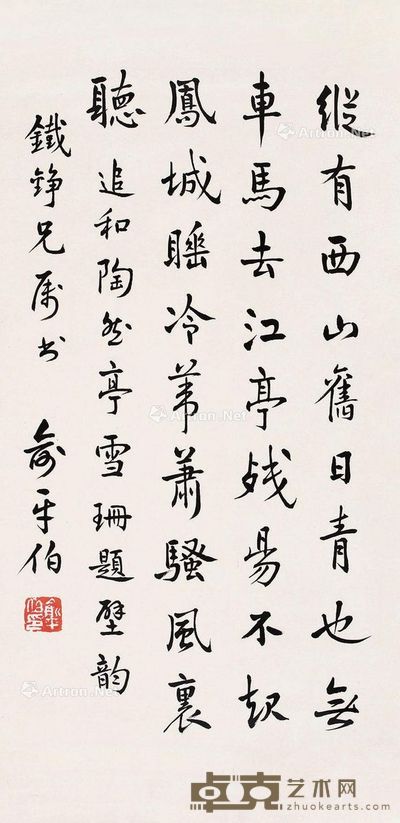 縱有西山舊日青也無
車馬去江亭殘昜不起
鳳城睡冷葦蕭騷風裏
聽 追和陶然亭雪珊題壁韵
鐵錚兄属书 俞平伯
Artron.Net
Artron.Net
Artron.Net
卓克艺术网
zhuokearts.com